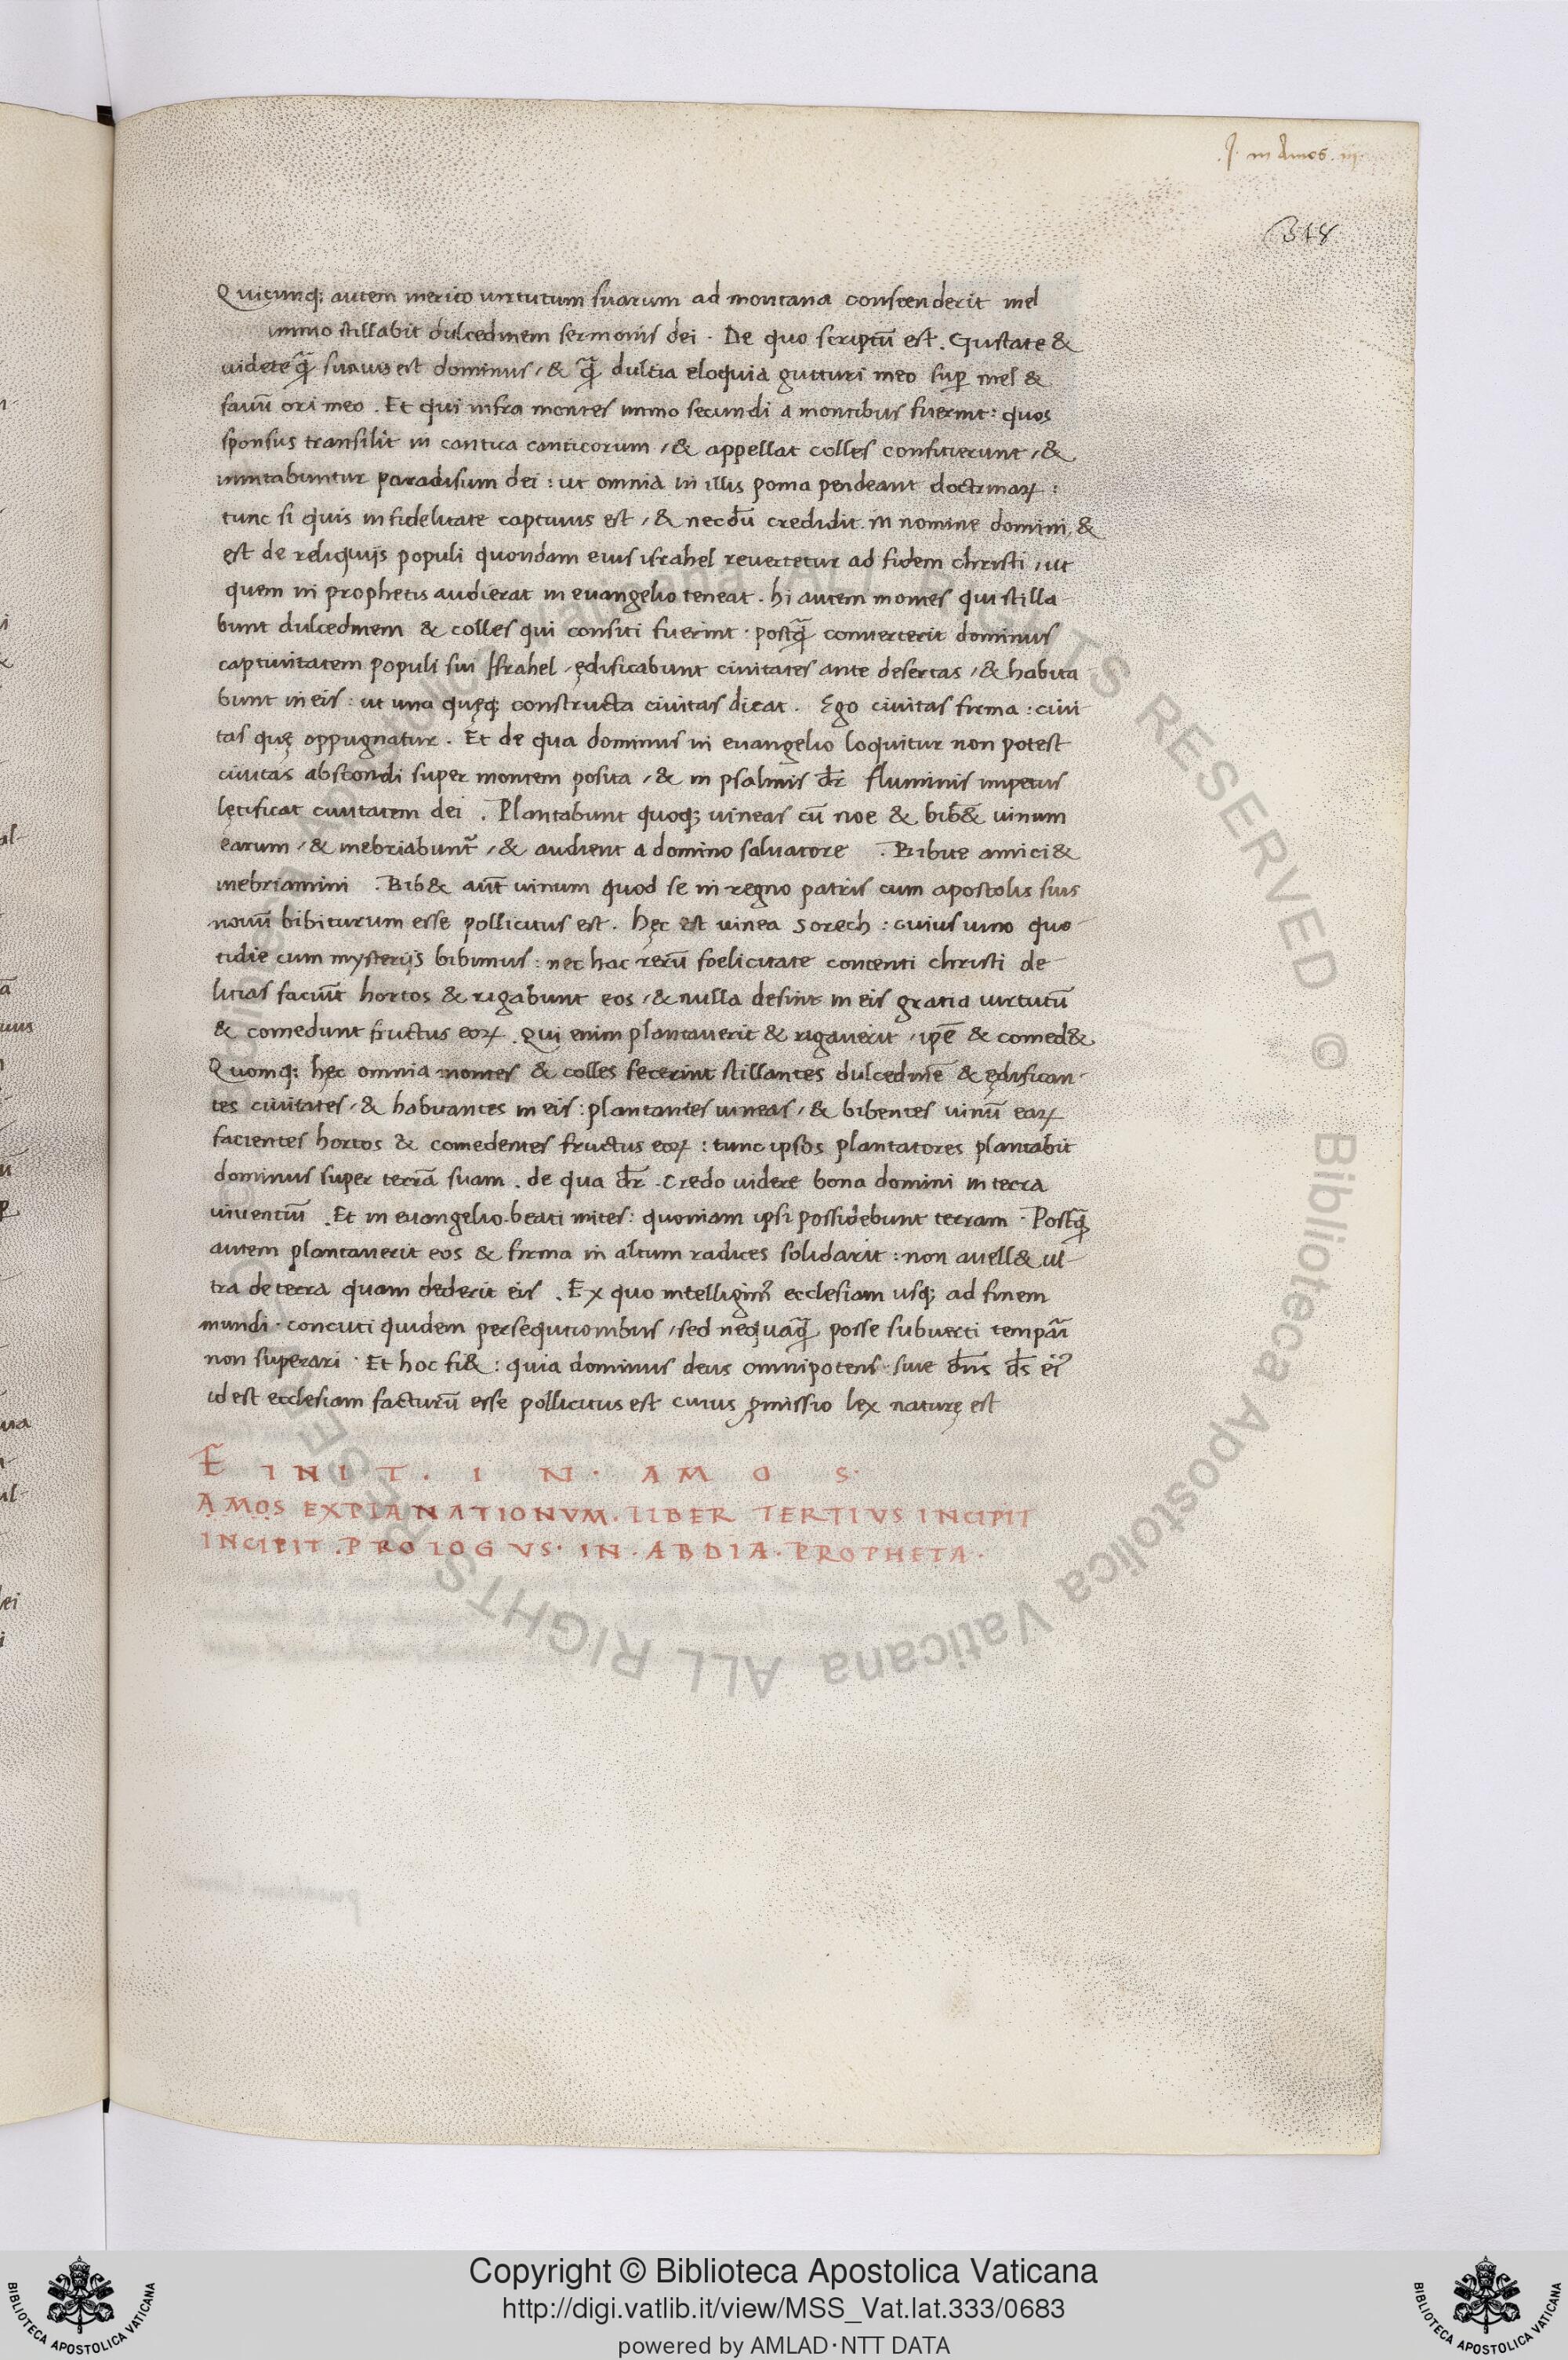 .J. in Amos. iij.
348
Quicunq; autem merito uirtutum suarum ad montana conscenderit mel
immo stillabit dulcedinem sermonis dei . De quo scriptū est . Gustate &
uidete q̄ suauis est dominus , & q̄ dulcia eloquia gutturi meo sup̱ mel &
fauū ori meo . Et qui infra montes immo secundi a montibus fuerint : quos
sponsus transilit in cantica canticorum , & appellat colles consiti erunt , &
imitabuntur paradisum dei : ut omnia in illis poma pendeant doctrinaꝝ :
tunc si quis infidelitate captiuus est , & necdū credidit in nomine domini , &
est de reliquijs populi quondam eius israhel reuertetur ad fidem christi , ut
quem in prophetis audierat in euangelio teneat . hi autem montes qui stilla
bunt dulcedinem & colles qui consiti fuerint . postq̄ conuerterit dominus
captiuitatem populi sui Israhel , ędificabunt ciuitates ante desertas , & habita
bunt in eis : ut una quęq; constructa ciuitas dicat . Ego ciuitas firma : ciui
tas quę oppugnatur . Et de qua dominus in euangelio loquitur non potest
ciuitas abscondi super montem posita , & in psalmis dr̄ fluminis impetus
lętificat ciuitatem dei . Plantabunt quoq; uineas cū noe & bib& uinum
earum , & inebriabunt᷑ , & audient a domino saluatore . Bibite amici &
inebriamini . Bib& aūt uinum quod se in regno patris cum apostolis suis
nouū bibiturum esse pollicitus est . hęc est uinea sorech : cuius uino quo
tidie cum mysterijs bibimus : nec hac rerū foelicitate contenti christi de
licias faciūt hortos & rigabunt eos , & nulla desint in eis gratia uirtutū
& comedunt fructus eoꝝ . Qui enim plantauerit & rigauerit , ip̄e & comed&
Quomq; hęc omnia montes & colles fecerint stillantes dulcedinē & ędifican
tes ciuitates , & habitantes in eis : plantantes uineas , & bibentes uinū eaꝝ
facientes hortos & comedentes fructus eoꝝ : tunc ipsos plantatores plantabit
dominus super terrā suam . de qua dr̄ . Credo uidere bona domini in terra
uiuentiū . Et in euangelio . beati mites : quoniam ipsi possidebunt terram . Postq̄
autem plantauerit eos & firma in altum radices solidarit : non auell& ul
tra de terra quam dederit eis . Ex quo intelligimꝰ ecclesiam usq; ad finem
mundi . concuti quidem persequtionibus , sed nequaq̄ posse subuerti temptāi
non superari . Et hoc fi& : quia dominus deus omnipotens siue dn̄s ds̄ eiꝰ
id est ecclesiam facturū esse pollicitus est cuius ꝓmissio lex naturę est
FINIT . IN . AMOS .
AMOS EXPLANATIONVM . LIBER TERTIVS INCIPIT
INCIPIT . PROLOGVS . IN . ABDIA . PROPHETA .
Copyright © Biblioteca Apostolica Vaticana
http://digi.vatlib.it/view/MSS_Vat.lat.333/0683
powered by AMLAD·NTT DATA